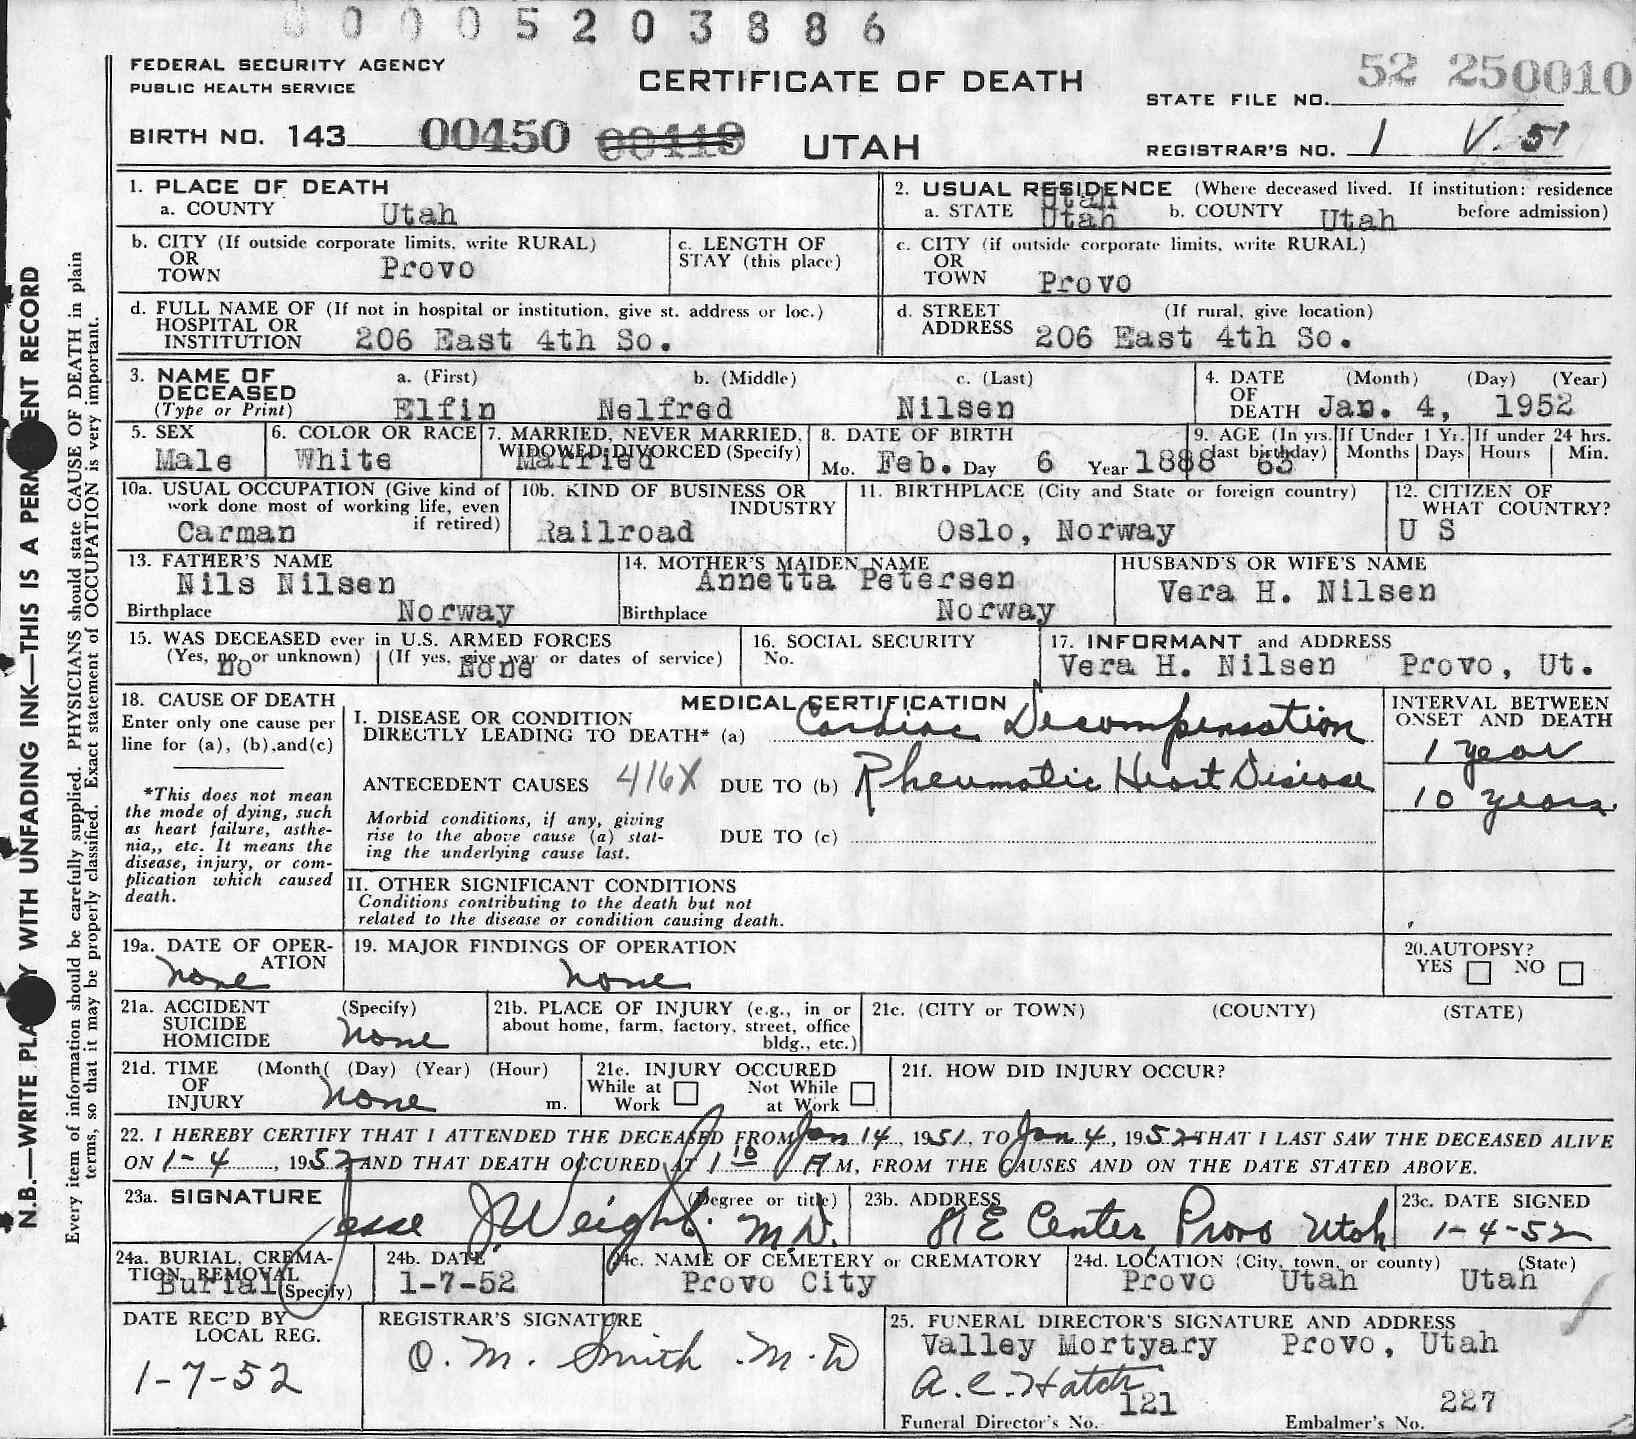 0 0 0 5 2 0 3 8 8 6
FEDERAL SECURITY AGENCY
PUBLIC HEALTH SERVICE
CERTIFICATE OF DEATH
52 250010
STATE FILE NO.
BIRTH NO. 143 00450 00419
UTAH
REGISTRAR'S NO. 1 V. 51
1. PLACE OF DEATH
a. COUNTY Utah
2. USUAL RESIDENCE (Where deceased lived. If institution: residence before admission)
a. STATE Utah Utah b. COUNTY Utah
b. CITY (If outside corporate limits, write RURAL)
OR
TOWN Provo
c. LENGTH OF
STAY (this place)
c. CITY (if outside corporate limits, write RURAL)
OR
TOWN Provo
d. FULL NAME OF (If not in hospital or institution, give st. address or loc.)
HOSPITAL OR
INSTITUTION 206 East 4th So.
d. STREET (If rural, give location)
ADDRESS 206 East 4th So.
3. NAME OF DECEASED (Type or Print)
a. (First) b. (Middle) c. (Last)
Elfin Nelfred Nilsen
4. DATE OF DEATH (Month) (Day) (Year)
Jan. 4, 1952
5. SEX
Male
6. COLOR OR RACE
White
7. MARRIED, NEVER MARRIED,
WIDOWED, DIVORCED (Specify)
Married
8. DATE OF BIRTH
Mo. Feb. Day 6 Year 1888
9. AGE (In yrs. last birthday) 63
If Under 1 Yr. Months Days
If under 24 hrs. Hours Min.
10a. USUAL OCCUPATION (Give kind of
work done most of working life, even
if retired)
Carman
10b. KIND OF BUSINESS OR
INDUSTRY
Railroad
11. BIRTHPLACE (City and State or foreign country)
Oslo, Norway
12. CITIZEN OF
WHAT COUNTRY?
U S
13. FATHER'S NAME
Nils Nilsen
Birthplace Norway
14. MOTHER'S MAIDEN NAME
Annetta Petersen
Birthplace Norway
HUSBAND'S OR WIFE'S NAME
Vera H. Nilsen
15. WAS DECEASED ever in U.S. ARMED FORCES
(Yes, no, or unknown) (If yes, give war or dates of service)
no None
16. SOCIAL SECURITY
No.
17. INFORMANT and ADDRESS
Vera H. Nilsen Provo, Ut.
18. CAUSE OF DEATH
Enter only one cause per
line for (a), (b), and (c)
*This does not mean
the mode of dying, such
as heart failure, asthe-
nia,, etc. It means the
disease, injury, or com-
plication which caused
death.
MEDICAL CERTIFICATION
I. DISEASE OR CONDITION
DIRECTLY LEADING TO DEATH* (a) Cardiac Decompensation
ANTECEDENT CAUSES 416X DUE TO (b) Rheumatic Heart Disease
Morbid conditions, if any, giving
rise to the above cause (a) stat-
ing the underlying cause last.
DUE TO (c)
INTERVAL BETWEEN
ONSET AND DEATH
1 year
10 years
II. OTHER SIGNIFICANT CONDITIONS
Conditions contributing to the death but not
related to the disease or condition causing death.
19a. DATE OF OPER-
ATION
none
19. MAJOR FINDINGS OF OPERATION
none
20. AUTOPSY?
YES NO
21a. ACCIDENT (Specify)
SUICIDE
HOMICIDE none
21b. PLACE OF INJURY (e.g., in or
about home, farm, factory, street, office
bldg., etc.)
21c. (CITY or TOWN) (COUNTY) (STATE)
21d. TIME (Month( (Day) (Year) (Hour)
OF
INJURY none m.
21e. INJURY OCCURED
While at Work Not While at Work
21f. HOW DID INJURY OCCUR?
22. I HEREBY CERTIFY THAT I ATTENDED THE DECEASED FROM Jan 14, 1951, TO Jan 4, 1952 THAT I LAST SAW THE DECEASED ALIVE
ON 1-4, 1952 AND THAT DEATH OCCURED AT 1 10 A M, FROM THE CAUSES AND ON THE DATE STATED ABOVE.
23a. SIGNATURE (Degree or title)
Jesse J Weight. M.D.
23b. ADDRESS
81 E Center, Provo Utah
23c. DATE SIGNED
1-4-52
24a. BURIAL, CREMA-
TION, REMOVAL (Specify)
Burial
24b. DATE
1-7-52
24c. NAME OF CEMETERY or CREMATORY
Provo City
24d. LOCATION (City, town, or county) (State)
Provo Utah Utah
DATE REC'D BY
LOCAL REG.
1-7-52
REGISTRAR'S SIGNATURE
O. M. Smith M.D
25. FUNERAL DIRECTOR'S SIGNATURE AND ADDRESS
Valley Mortyary Provo, Utah
A. C. Hatch
Funeral Director's No. 121 Embalmer's No. 227
N.B.—WRITE PLAINLY WITH UNFADING INK—THIS IS A PERMANENT RECORD
Every item of information should be carefully supplied. PHYSICIANS should state CAUSE OF DEATH in plain
terms, so that it may be properly classified. Exact statement of OCCUPATION is very important.